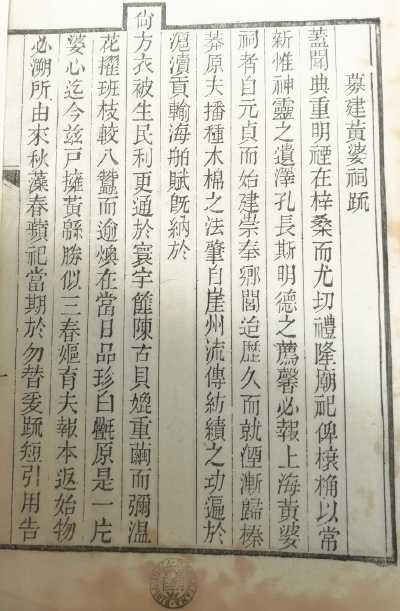 募建黃婆祠䟽
蓋聞典重明禋在梓桑而尤切禮隆廟祀俾榱桷以常
新惟神靈之遺澤孔長斯明德之薦馨必報上海黃婆
祠者自元貞而始建崇奉鄉閭迨歷久而就湮漸歸榛
莽原夫播種木棉之法肇自崖州流傳紡績之功遍於
滬瀆貢輸海舶賦旣納於
尙方衣被生民利更通於寰宇陳古貝媲重繭而彌溫
花擢班枝較八蠶而逾燠在當日品珍白氎原是一片
婆心迄今茲戸擁黃緜勝似三春嫗育夫報本返始物
必溯所由來秋藻春蘋祀當期於勿替爰䟽短引用告